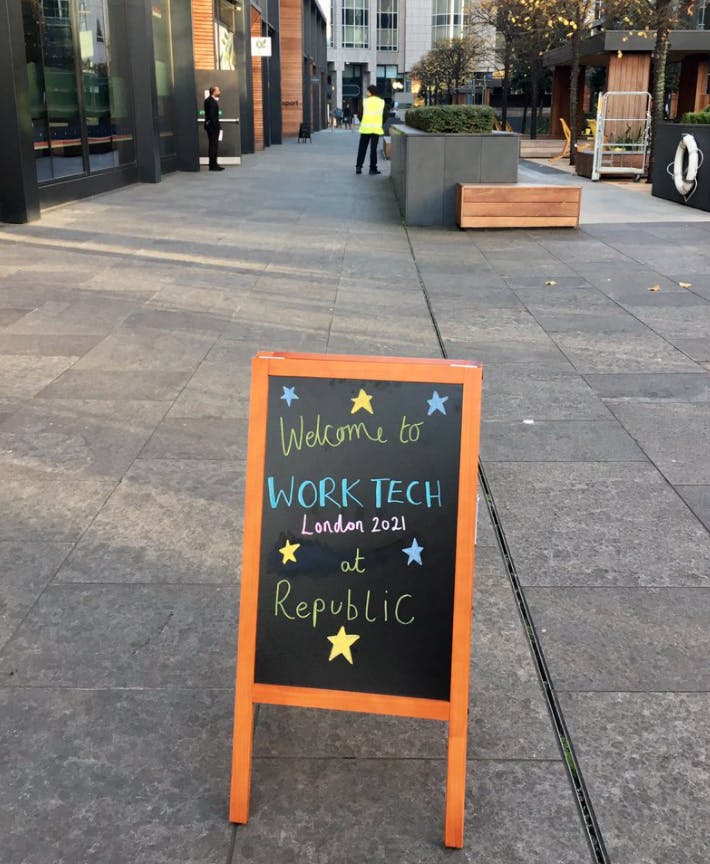 Welcome to
WORK TECH
London 2021
at
Republic